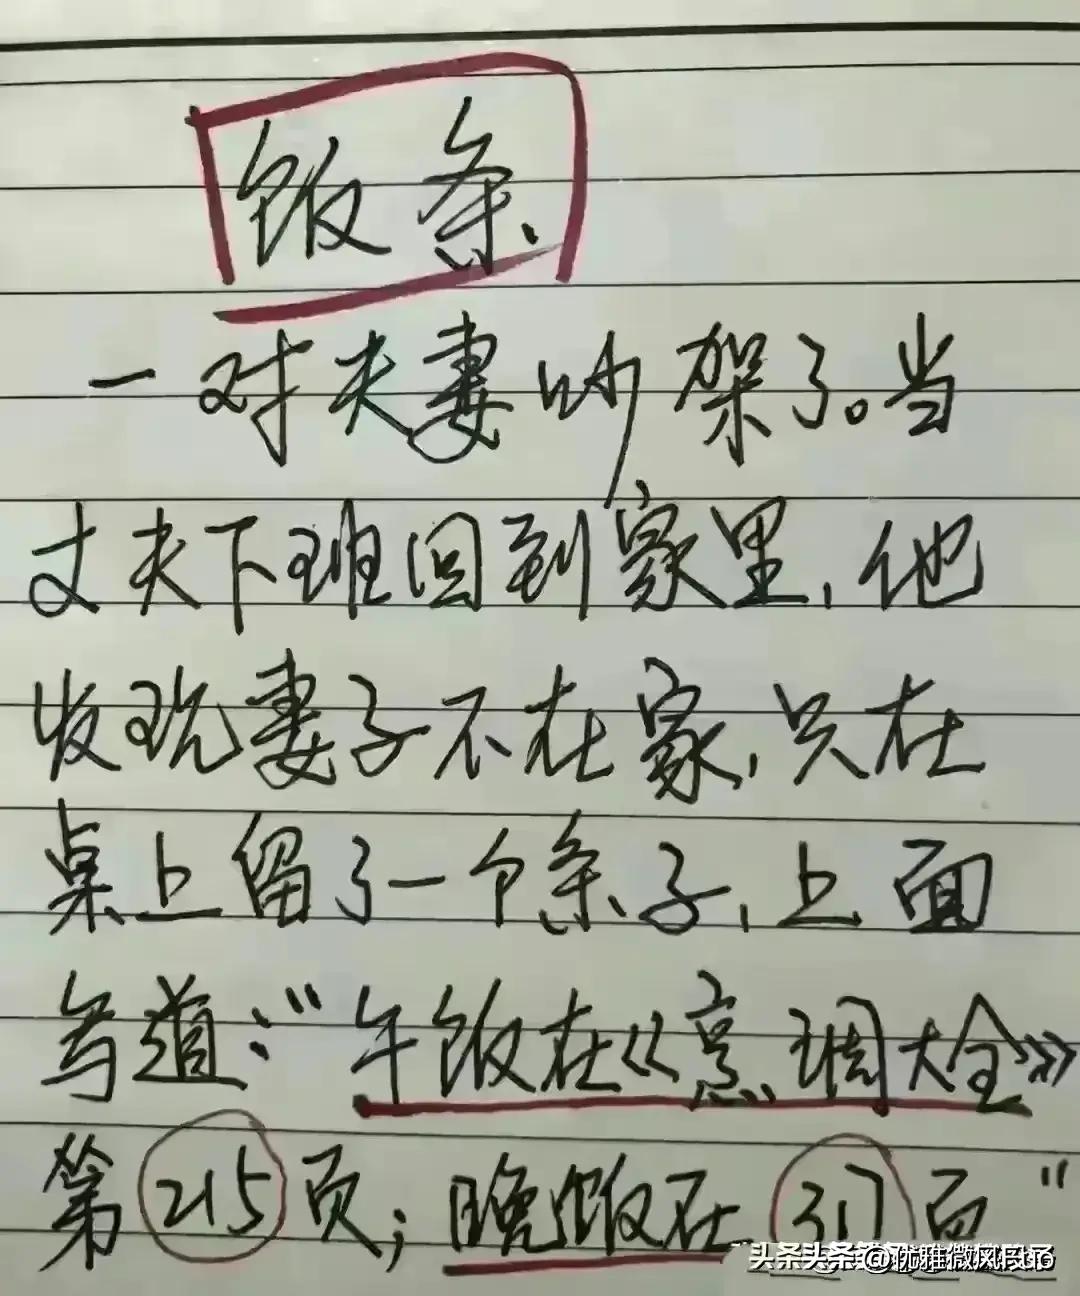 饭条
一对夫妻吵架了。当
丈夫下班回到家里,他
发现妻子不在家,只在
桌上留了一个条子,上面
写道:“午饭在《烹调大全》
第215页;晚饭在317页”
头条@优雅微风段